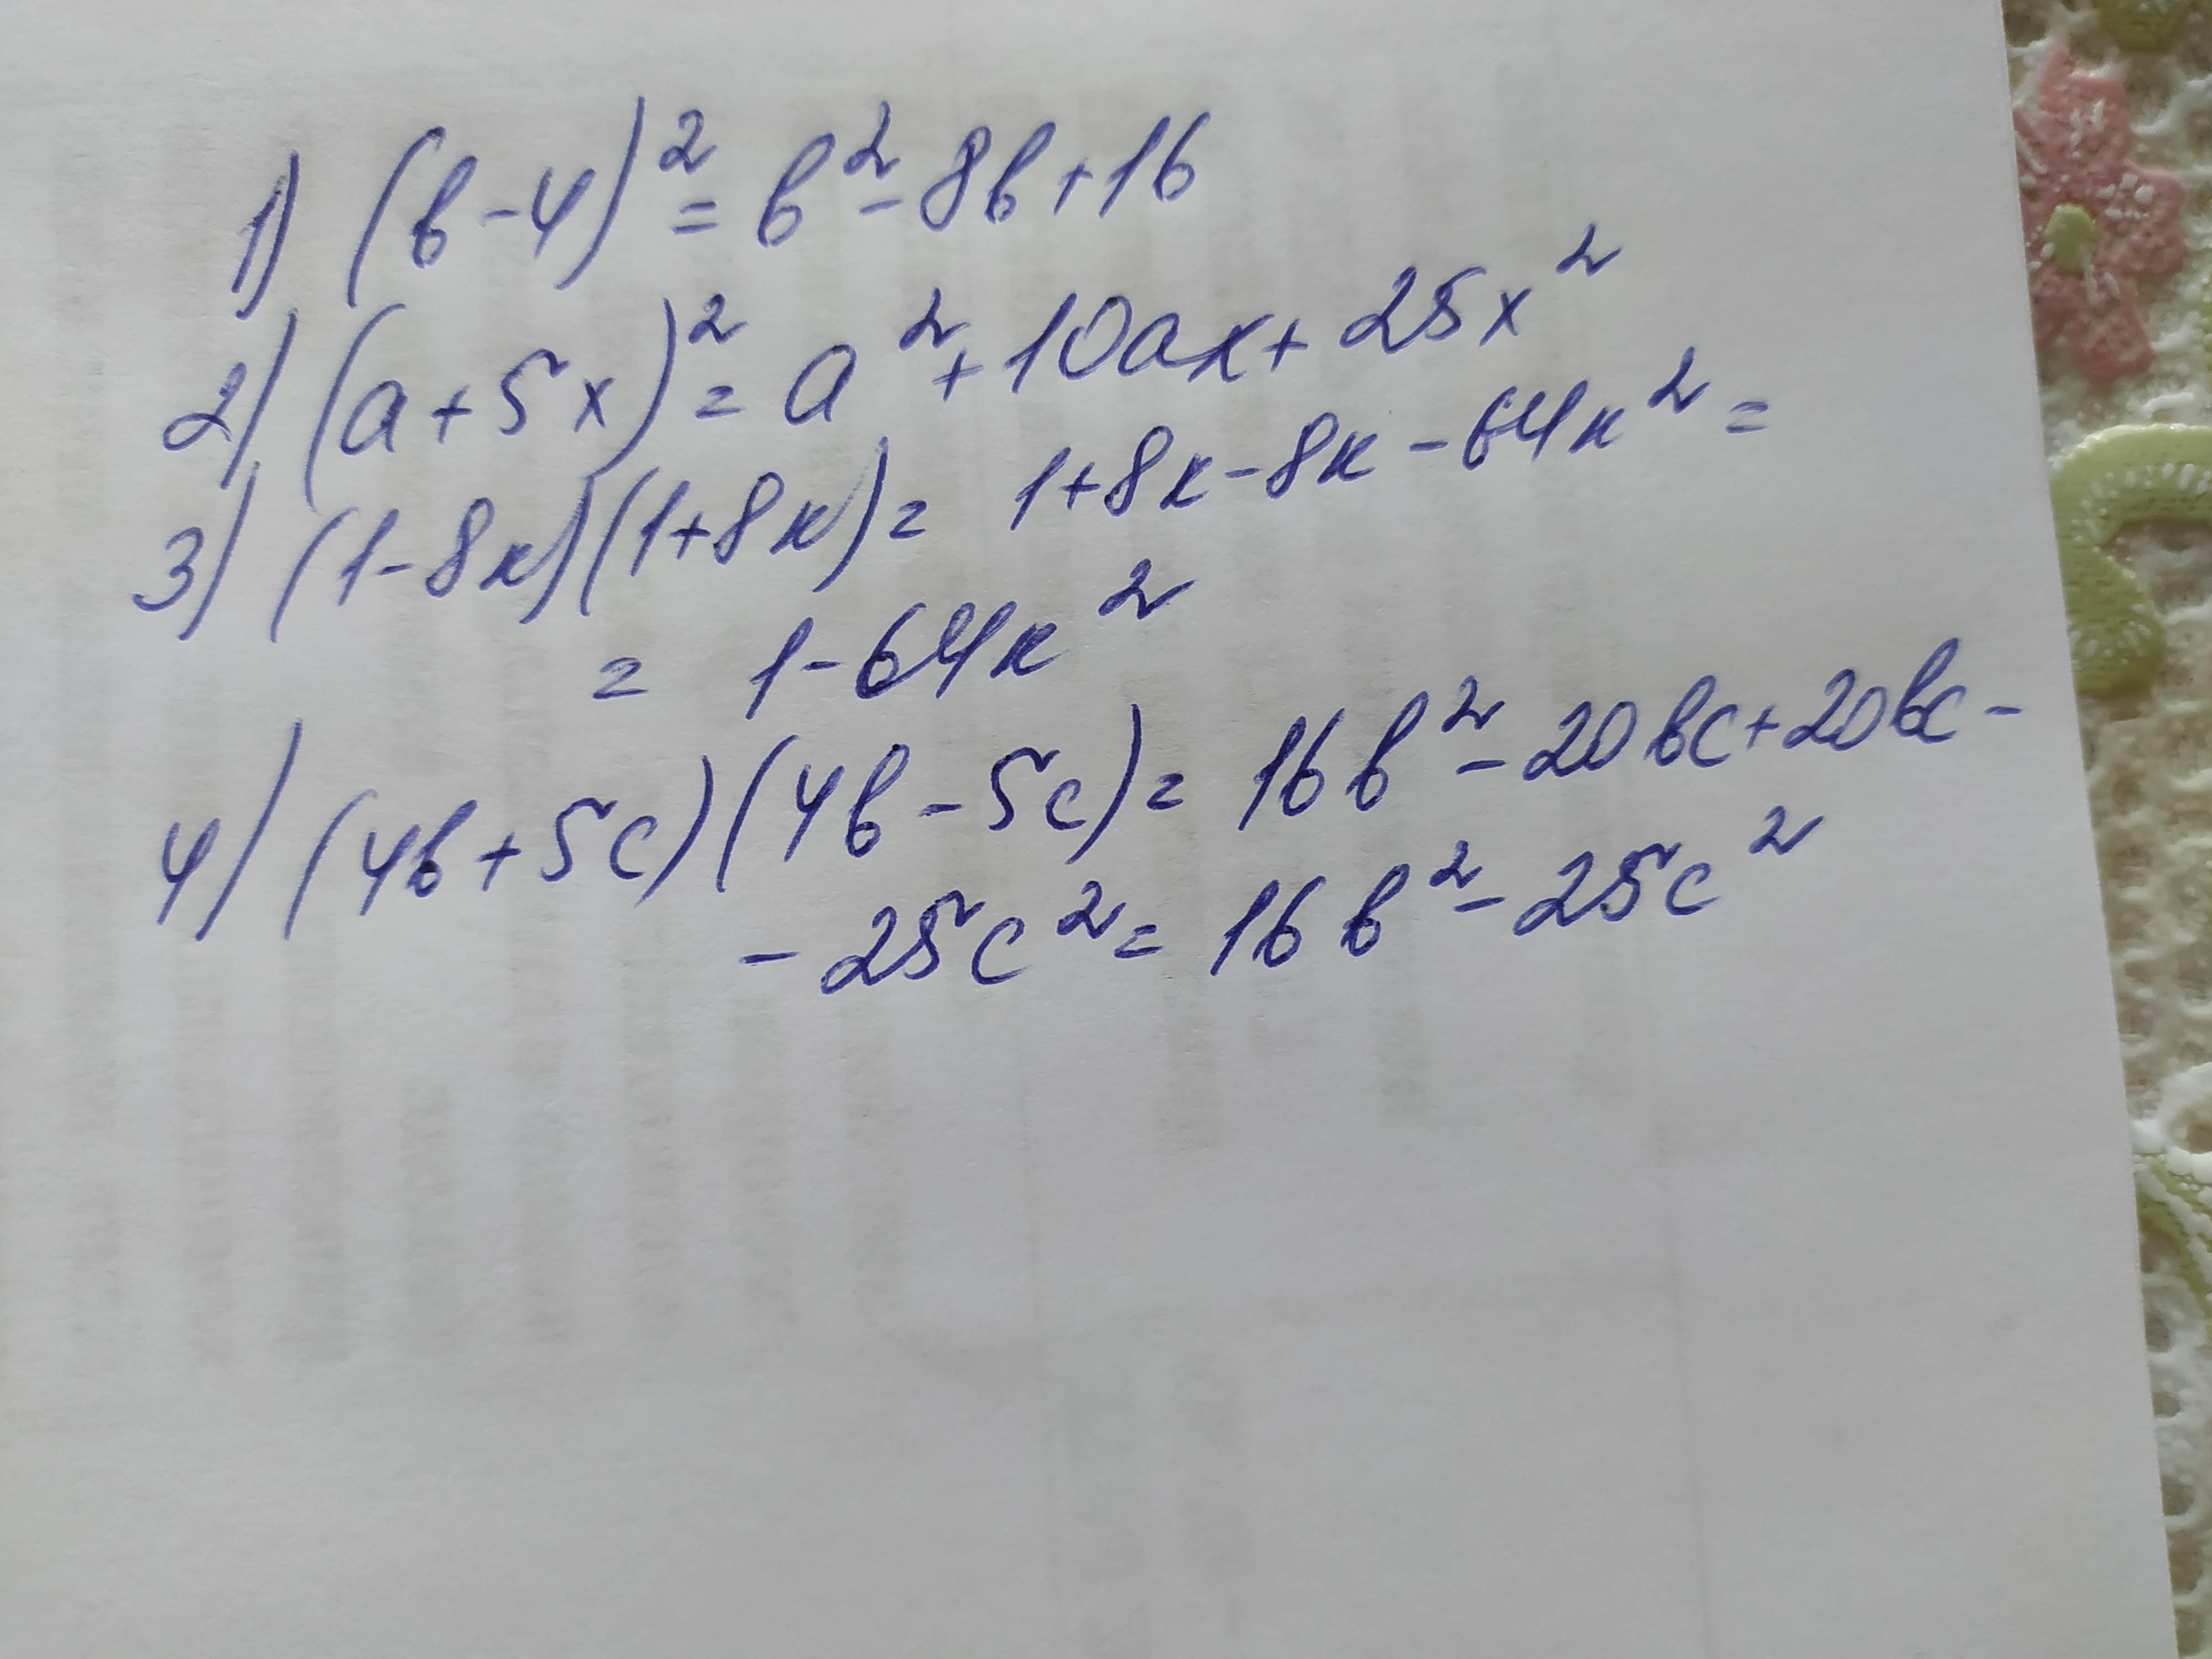 1) (b-4)² = b² - 8b + 16
2) (a+5x)² = a² + 10ax + 25x²
3) (1-8x)(1+8x) = 1+8x-8x-64x² =
= 1-64x²
4) (4b+5c)(4b-5c) = 16b² - 20bc + 20bc -
- 25c² = 16b² - 25c²